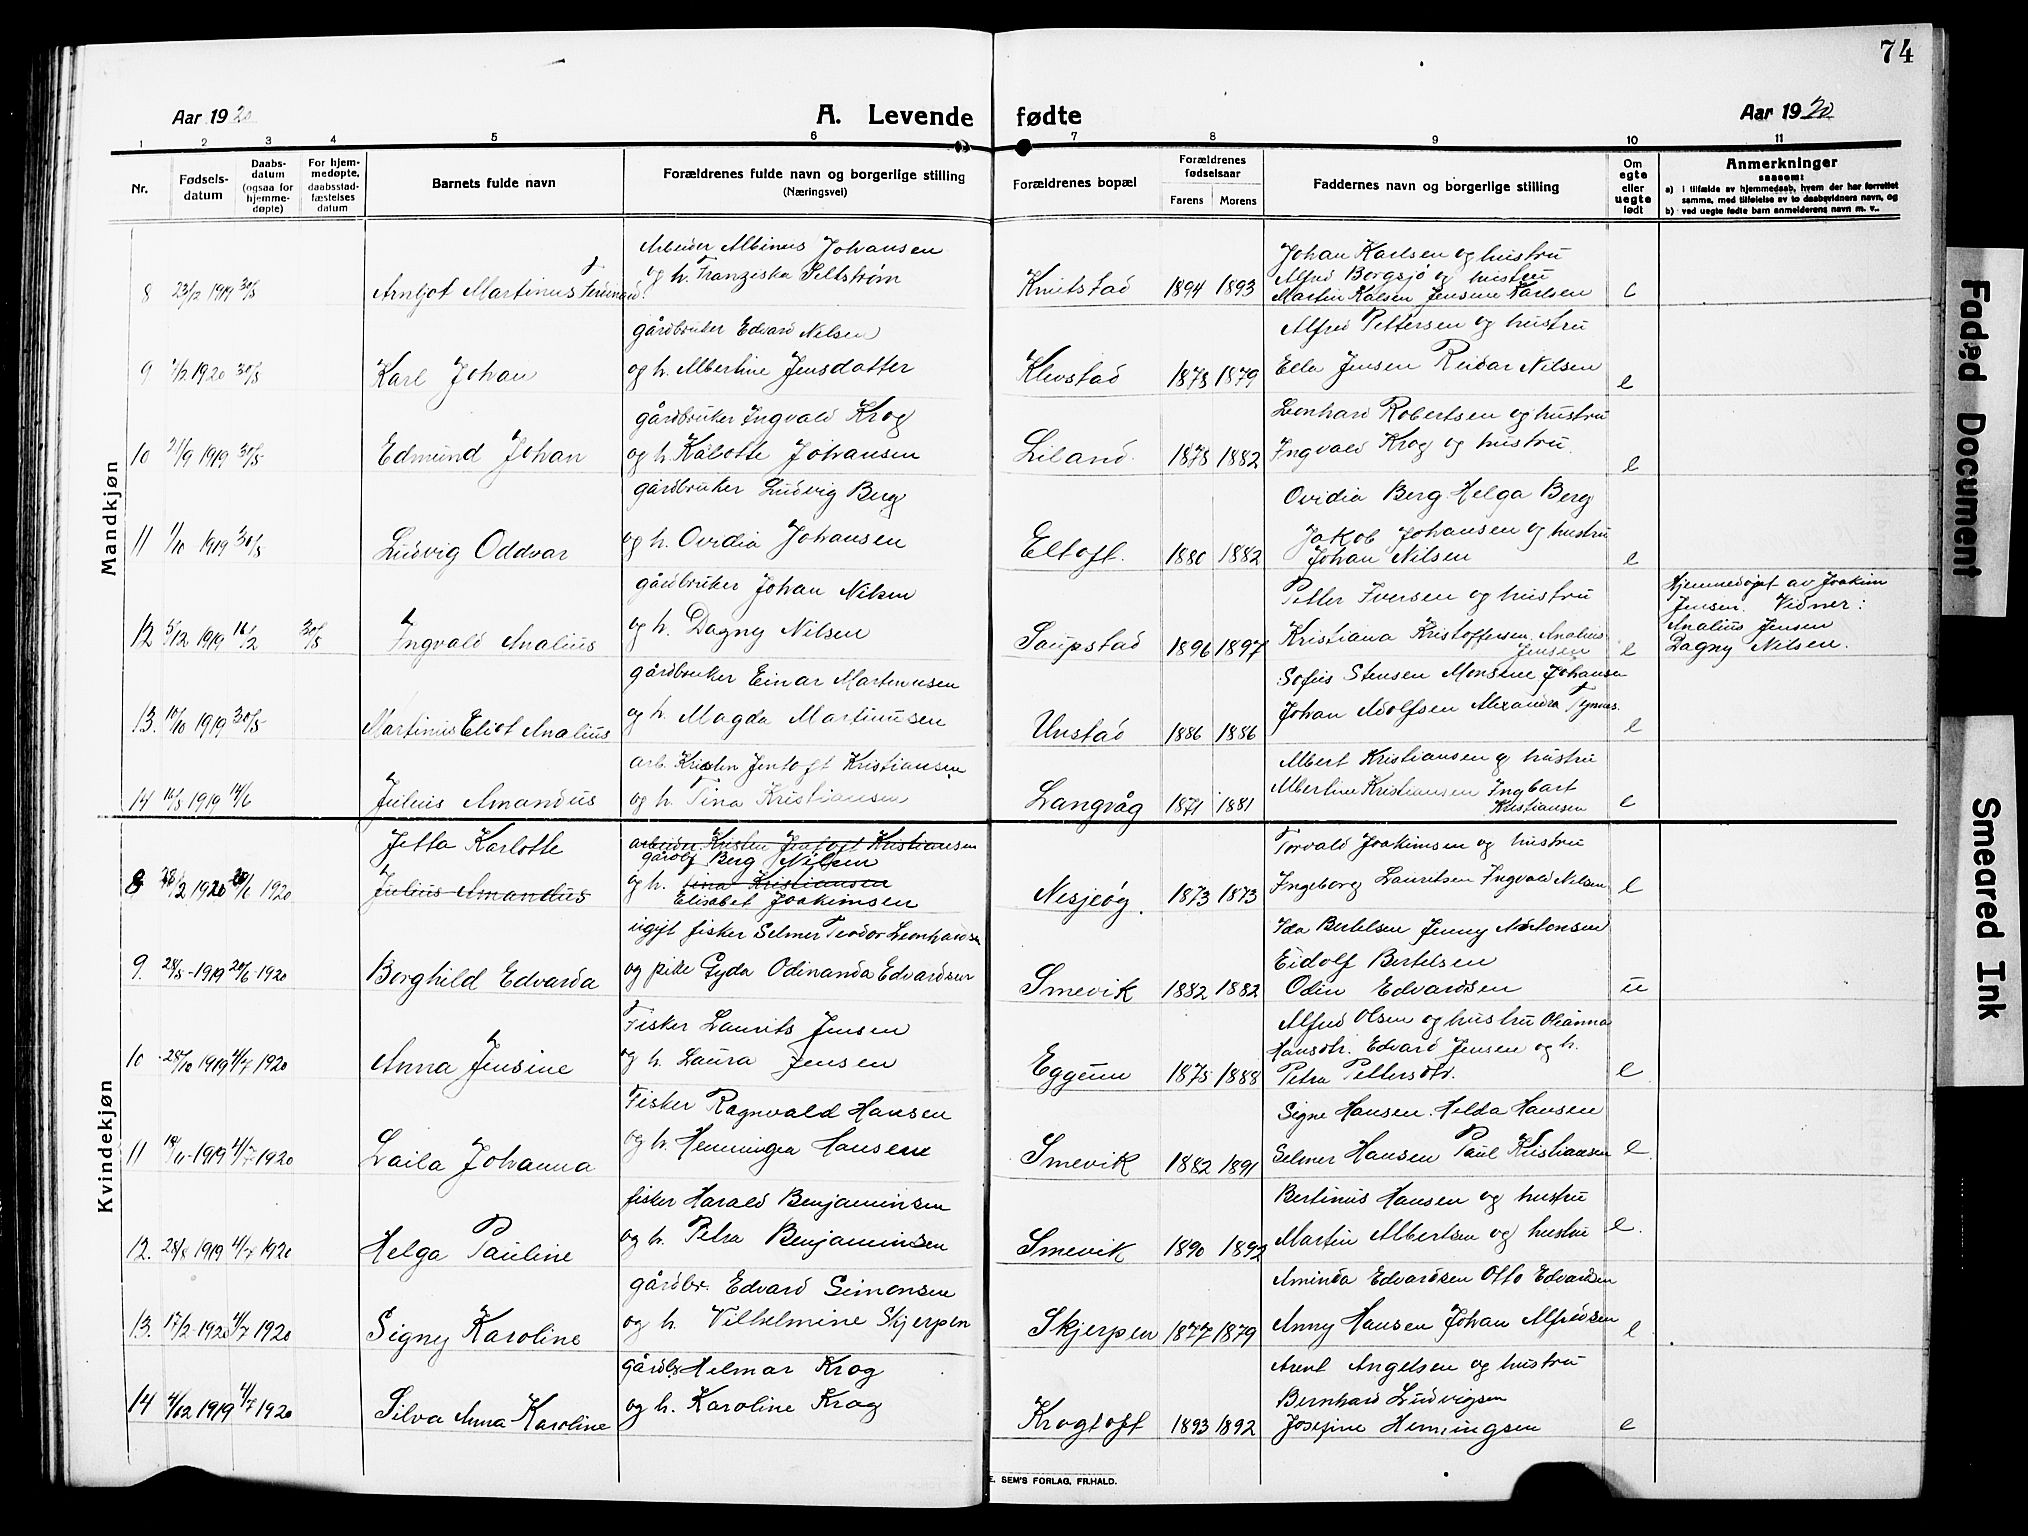 74
Aar 1920
A. Levende fødte
Aar 1920
1 2 3 4 5 6 7 8 9 10 11
Nr.
Fødsels-
datum
Daabs-
datum
(ogsaa for
hjemme-
døpte)
For hjem-
medøpte,
daabsstad-
fæstelses
datum
Barnets fulde navn
Forældrenes fulde navn og borgerlige stilling
(Næringsvei)
Forældrenes bopæl
Forældrenes
fødselsaar
Farens Morens
Faddernes navn og borgerlige stilling
Om
egte
eller
uegte
født
Anmerkninger
saasom:
a) i tilfælde av hjemmedaab, hvem der har forrettet
samme, med tilføielse av to daabsvidners navn, og
b) ved uegte fødte barn anmelderens navn m. v..
Mandkjøn
Arbeider Albinus Johansen
og h. Franziska Seltstrøm
8 23/12 1919 30/5 Arnljot Martinus Ferdinand. Knutstad 1894 1893
Johan Karlsen og hustru
Alfred Borgsjø og hustru
Martin Kalsen Jensine Karlsen e
gårdbruker Edvard Nilsen
9 7/2 1920 30/5 Karl Johan og h. Albertine Jensdatter Klevstad 1878 1879
Alfred Pettersen og hustru
Ella Jensen Reidar Nilsen e
gårdbruker Ingvald Krog
10 21/9 1919 30/5 Edmund Johan og h. Kalotte Johansen Liland 1878 1882
Leonhard Robertsen og hustru
Ingvald Krog og hustru. e
gårdbruker Ludvig Berg
11 1/10 1919 30/5 Ludvig Oddvar og h. Ovidia Johansen Eltoft. 1880 1882
Ovidia Berg Helga Berg
Jakob Johansen og hustru
Johan Nilsen e
gårdbruker Johan Nilsen
12 5/12 1919 16/2 30/5 Ingvald Analius og h. Dagny Nilsen Saupstad 1896 1897
Petter Iversen og hustru
Kristiana Kristoffersen. Analius
Jensen e
Hjemmedøpt av Joakim
Jensen. Vidner:
Analius Jensen
Dagny Nilsen.
gårdbruker Einar Martinusen
13. 10/10 1919 30/5 Martinus Eliot Analius og h. Magda Martinusen Unstad 1886 1886
Sofus Stensen Monsine Johansen
Johan Adolfsen Alexandra Tynnes. e
arb. Kristen Jentoft Kristiansen
14 16/5 1919 14/6 Julius Amandus og h. Tina Kristiansen Langvåg 1871 1881
Albert Kristiansen og hustru
Albertine Kristiansen Ingbart
Kristiansen e
Kvindekjøn
Jetta Karlotte
arbeider Kristen Jentoft Kristiansen
gårdb. Berg Nilsen
8 28/2 1920 20/6 1920 Julius Amandus og h. Tina Kristiansen
Elisabet Joakimsen Nesjevåg. 1873 1873
Torvald Joakimsen og hustru
Ingeborg Lauritsen Ingvald Nilsen e
ugift fisker Selmer Teodor Leonhardsen
9. 28/5-1919 20/6-1920 Borghild Edvarda og pike Gyda Odinanda Edvardsen Smevik 1882 1882
Ida Bertelsen Jenny Antonsen
Eidolf Bertelsen
Odin Edvardsen u
Fisker Laurits Jensen
10 28/10 1919 4/7 1920 Anna Jensine og h. Laura Jensen Eggum 1875 1888
Alfred Olsen og hustru Oleanna
Hansdtr. Edvard Jensen og h.
Petra Pettersdtr. e
Fisker Ragnvald Hansen
11 19/11-1919 4/7 1920 Laila Johanna og h. Henningea Hansen Smevik 1882 1891
Signe Hansen. Helda Hansen
Selmer Hansen Paul Kristiansen e
fisker Harald Benjaminsen
12. 28/8 1919 4/7 1920 Helga Pauline og h. Petra Benjaminsen Smevik 1890 1892
Bertinus Hansen og hustru
Martin Albertsen og hustru e.
gårdbr. Edvard Simonsen
13. 17/2-1920 4/7 1920 Signy Karoline og h. Vilhelmine Skjerpen Skjerpen 1877 1879
Aminda Edvardsen Otto Edvardsen
Anny Hansen Johan Alfredsen e
gårdb. Helmar Krog
14 4/12 1919 4/7 1920 Silva Anna Karoline og h. Karoline Krog Krogtoft 1893 1892
Arent Angelsen og hustru
Bernhard Ludvigsen
Josefine Hemmingsen e
E. SEM'S FORLAG, FR.HALD.
Faded Document
Smeared Ink